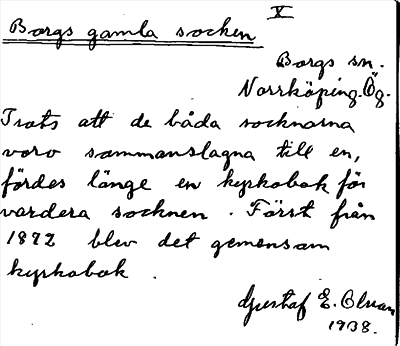 V
Borgs gamla socken
Borgs sn.
Norrköping. Ög.
Trots att de båda socknarna
voro sammanslagna till en,
fördes länge en kyrkobok för
vardera socknen. Först från
1872 blev det gemensam
kyrkobok.
Gustaf E.
1938.